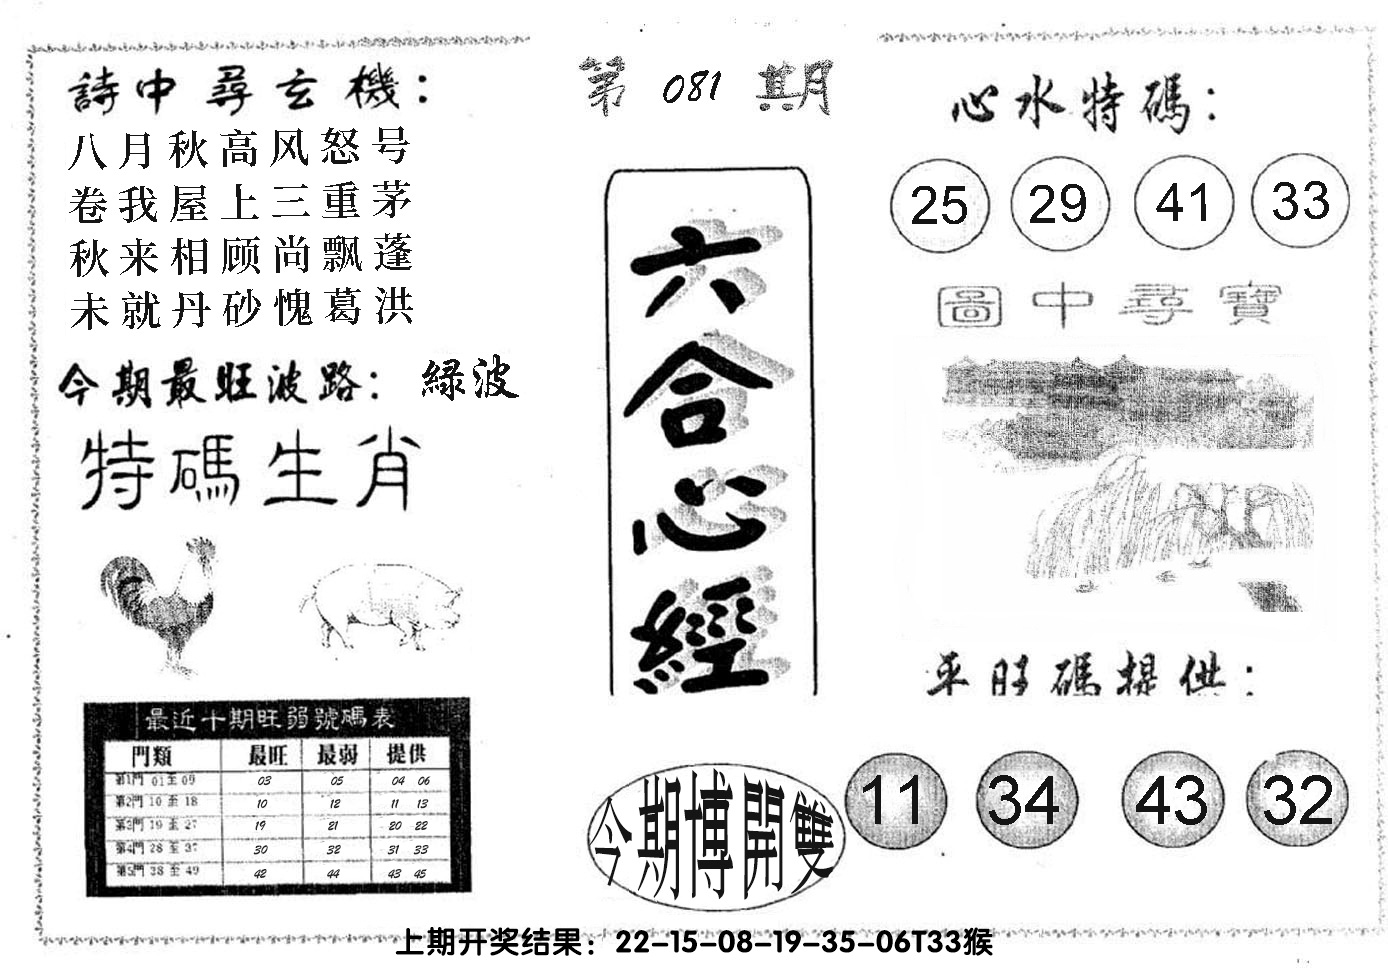 第 081 期
詩中尋玄機：
八月秋高风怒号
卷我屋上三重茅
秋来相顾尚飘蓬
未就丹砂愧葛洪
今期最旺波路：綠波
特碼生肖
最近十期旺弱號碼表
門類 最旺 最弱 提供
第1門 01至09 03 05 04 06
第2門 10至18 10 12 11 13
第3門 19至27 19 21 20 22
第4門 28至37 30 32 31 33
第5門 38至49 42 44 43 45
六合心經
今期博開雙
心水特碼：
25 29 41 33
圖中尋寶
平旺碼提供：
11 34 43 32
上期开奖结果：22-15-08-19-35-06T33猴